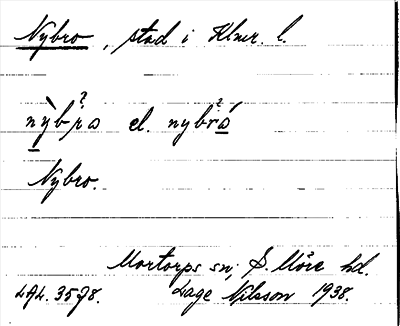 Nybro, stad i Klmr. l.
nỳbro el. nybró
Nybro.
Mortorps sn, S. Möre hd.
LAL. 3578. Lage Nilsson 1938.